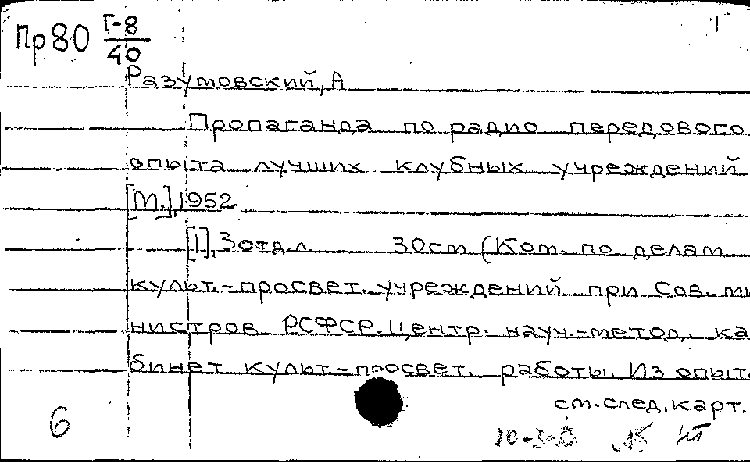 1
Пр80 I-8/40
Разумовский, А
Пропаганда по радио передового
опыта лучших клубных учреждений
[М.], 1952
[1], 3 отд.л. 30см (Ком. по делам
культ.-просвет. учреждений при Сов. ми
нистров РСФСР. Центр. науч.-метод. ка
бинет культ-просвет. работы. Из опыт
см. след. карт.
6